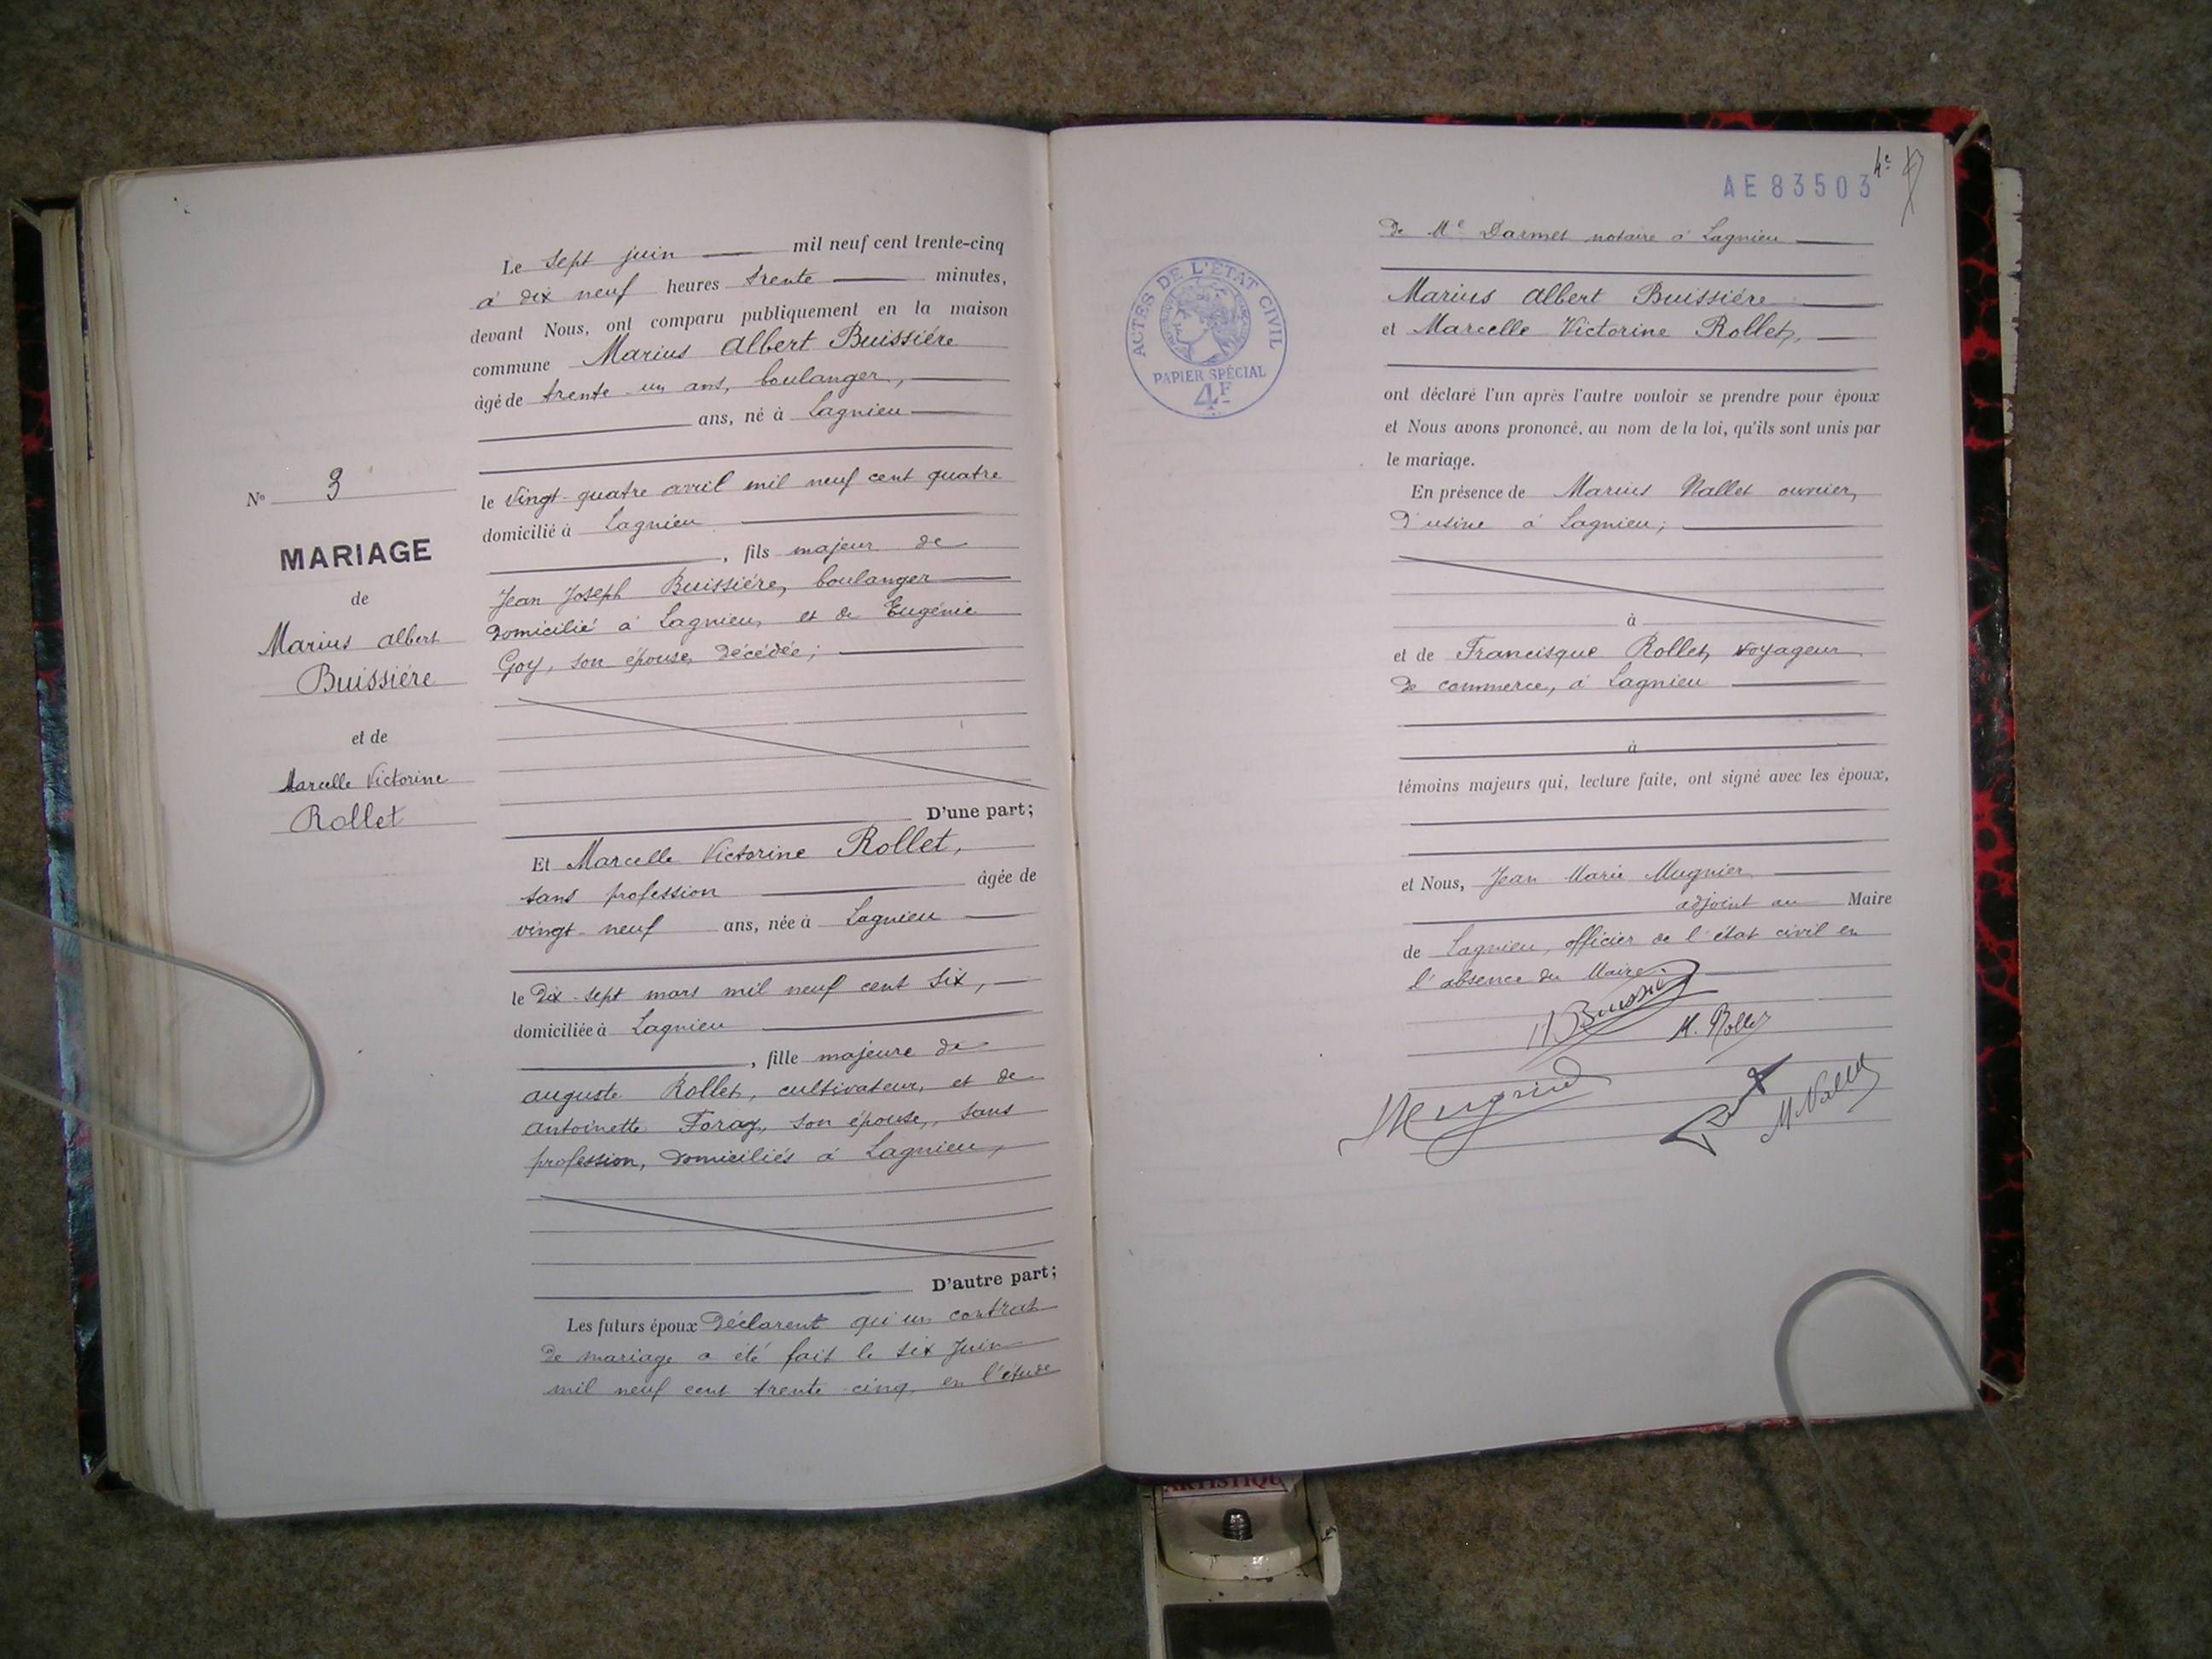 Le sept juin mil neuf cent trente-cinq
à dix neuf heures trente minutes,
devant Nous, ont comparu publiquement en la maison
commune Marius Albert Buissiére
âgé de trente un ans, boulanger,
ans, né à Lagnieu
le vingt-quatre avril mil neuf cent quatre
domicilié à Lagnieu
, fils majeur de
Jean Joseph Buissiére, boulanger
domicilié à Lagnieu, et de Eugénie
Goy, son épouse, décédée;
D'une part;
Et Marcelle Victorine Rollet,
sans profession âgée de
vingt-neuf ans, née à Lagnieu
le dix-sept mars mil neuf cent six,
domiciliée à Lagnieu
, fille majeure de
auguste Rollet, cultivateur, et de
antoinette Foray, son épouse, sans
profession, domiciliés à Lagnieu,
D'autre part;
Les futurs époux déclarent qu'un contrat
de mariage a été fait le six Juin
mil neuf cent trente-cinq, en l'étude
No 3
MARIAGE
de
Marius albert
Buissiére
et de
Marcelle Victorine
Rollet
AE83503
4e
ACTES DE L'ÉTAT CIVIL
PAPIER SPÉCIAL
4F
de Me Darmet notaire à Lagnieu
Marius Albert Buissiére
et Marcelle Victorine Rollet,
ont déclaré l'un après l'autre vouloir se prendre pour époux
et Nous avons prononcé, au nom de la loi, qu'ils sont unis par
le mariage.
En présence de Marius Nallet ouvrier,
d'usine à Lagnieu;
à
et de Francisque Rollet, voyageur
de commerce, à Lagnieu
à
témoins majeurs qui, lecture faite, ont signé avec les époux,
et Nous, Jean Marie Mugnier,
adjoint au Maire
de Lagnieu, officier de l'état civil en
l'absence du Maire.
M. Rollet
Mugnier
M. Nallet